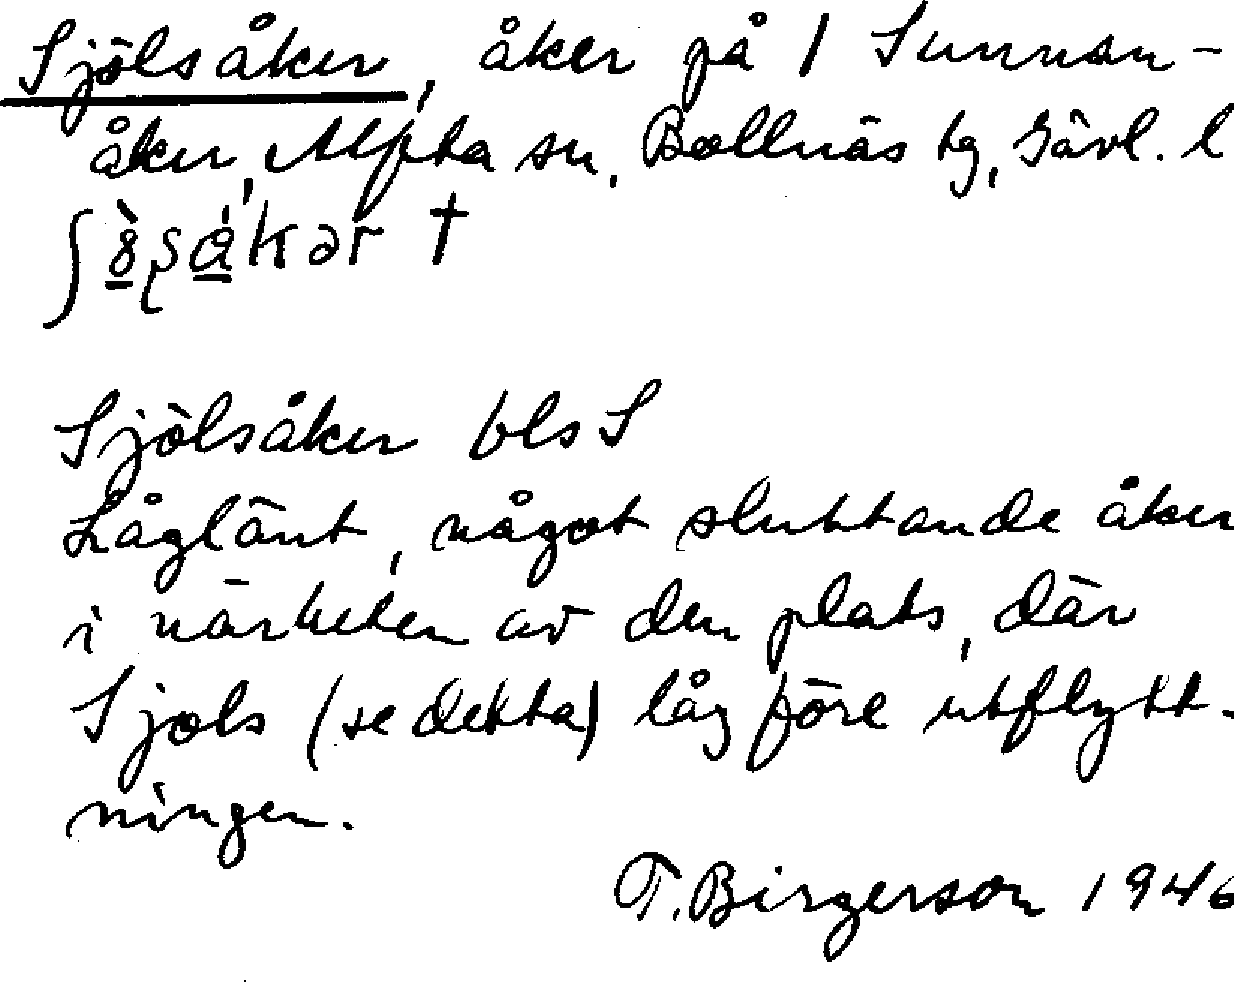 Sjölsåker, åker på 1 Sunnan-
åker, Alfta sn, Bollnäs tg, Gävl. l
Sjölsåker bls S
Låglänt, något sluttande åker
i närheten av den plats, där
Sjols (se detta) låg före utflytt-
ningen.
T. Birgerson 1946